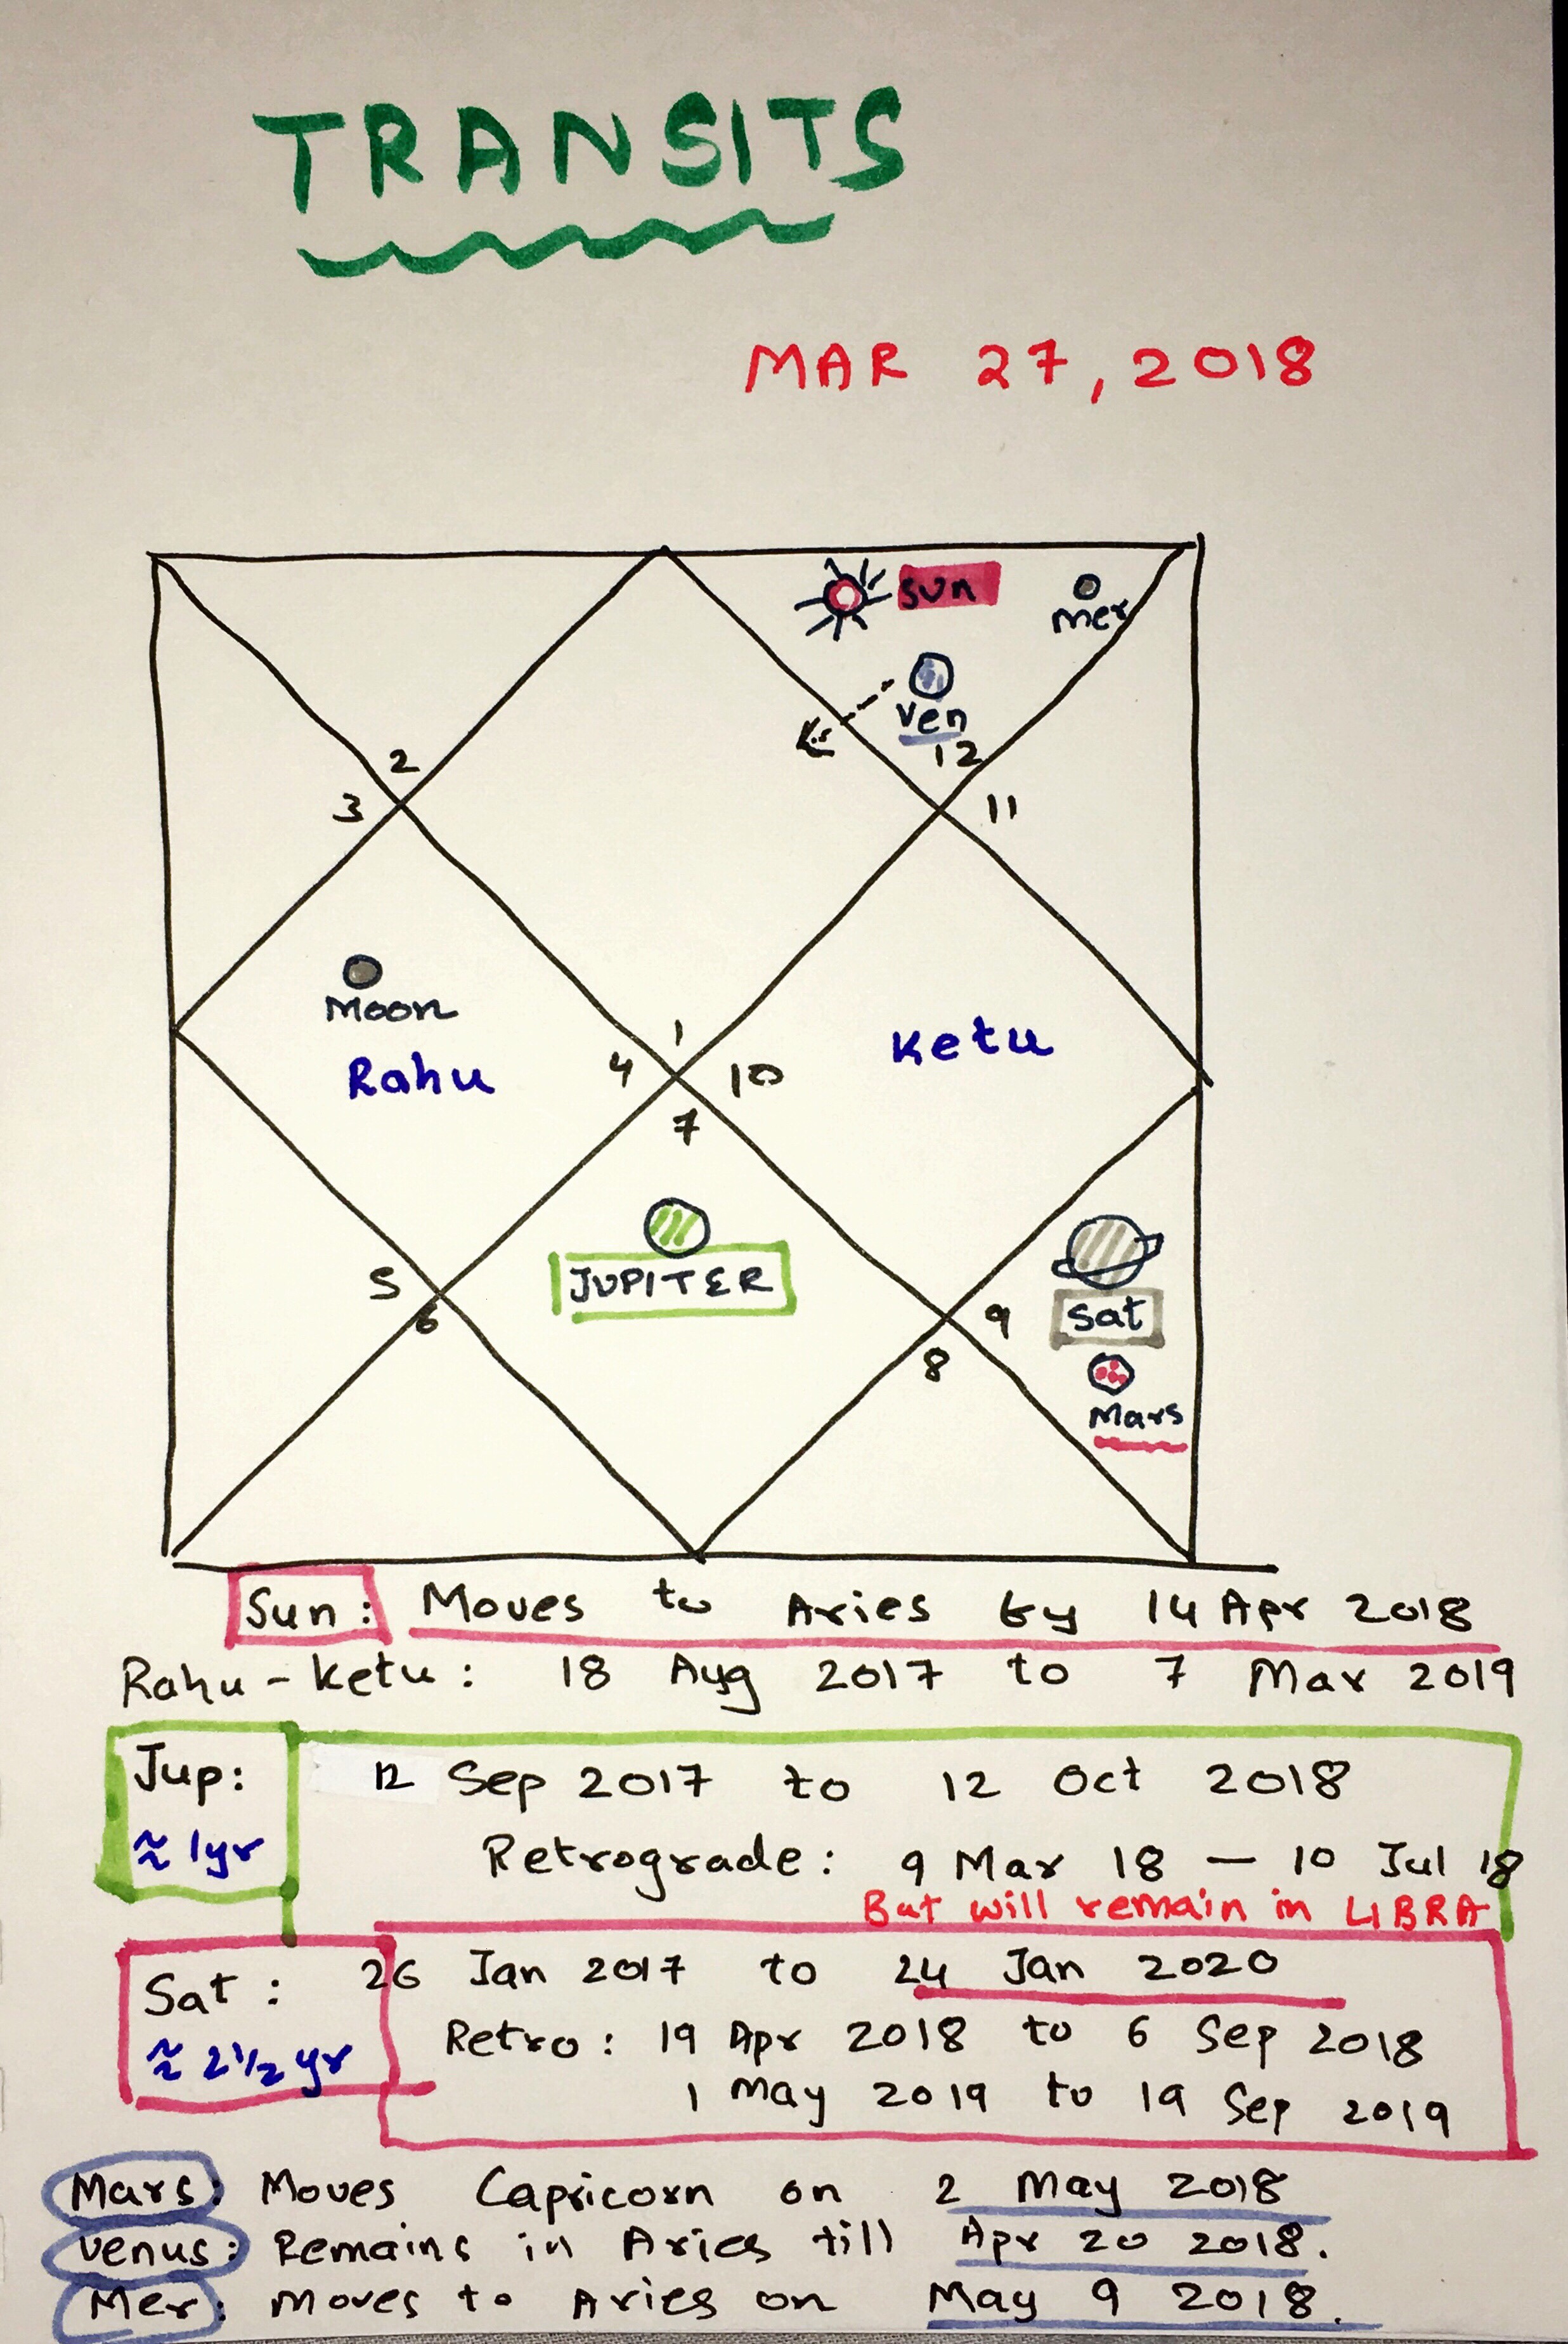 TRANSITS
MAR 27, 2018
sun
mer
Ven
12
2
3
11
Moon
Rahu
Ketu
1
4
10
7
JUPITER
5
6
9
8
Sat
Mars
Sun: Moves to Aries by 14 Apr 2018
Rahu - Ketu: 18 Aug 2017 to 7 Mar 2019
Jup: 12 Sep 2017 to 12 Oct 2018
≈ 1yr Retrograde: 9 Mar 18 — 10 Jul 18
But will remain in LIBRA
Sat: 26 Jan 2017 to 24 Jan 2020
≈ 2 1/2 yr Retro: 19 Apr 2018 to 6 Sep 2018
1 May 2019 to 19 Sep 2019
Mars: Moves Capricorn on 2 May 2018
Venus: Remains in Aries till Apr 20 2018.
Mer: Moves to Aries on May 9 2018.